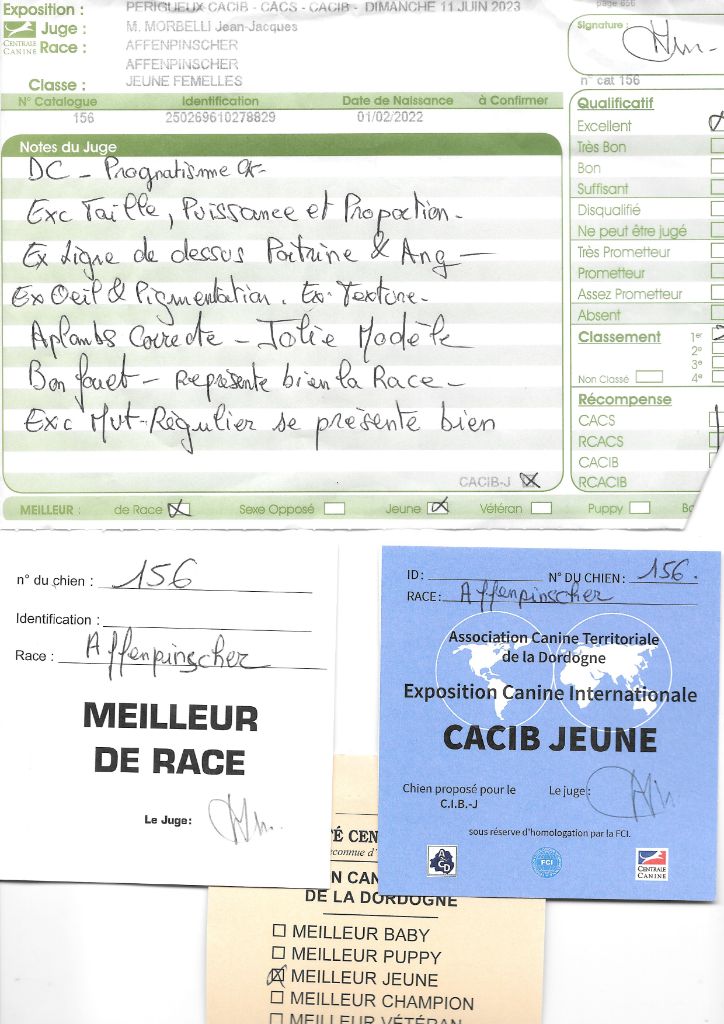 Exposition : PERIGUEUX CACIB - CACS - CACIB - DIMANCHE 11 JUIN 2023
page 656
Juge : M. MORBELLI Jean-Jacques
Signature :
CENTRALE CANINE
Race : AFFENPINSCHER
AFFENPINSCHER
Classe : JEUNE FEMELLES
n° cat 156
N° Catalogue Identification Date de Naissance à Confirmer
156 250269610278829 01/02/2022
Notes du Juge
DC - Prognatisme
Exc Taille, Puissance et Propoction -
Ex Ligne de dessus Poitrine & Ang -
Ex Oeil & Pigmentation. Ex. Texture -
Aplombs Correcte - Jolie Modèle
Bon fouet - Représente bien la Race -
Exc Mvt - Régulier se présente bien
CACIB-J
Qualificatif
Excellent
Très Bon
Bon
Suffisant
Disqualifié
Ne peut être jugé
Très Prometteur
Prometteur
Assez Prometteur
Absent
Classement 1er
2e
3e
Non Classé 4e
Récompense
CACS
RCACS
CACIB
RCACIB
MEILLEUR : de Race Sexe Opposé Jeune Vétéran Puppy
n° du chien : 156
Identification :
Race : Affenpinscher
MEILLEUR
DE RACE
Le Juge:
ID: N° DU CHIEN: 156.
RACE: Affenpinscher
Association Canine Territoriale
de la Dordogne
Exposition Canine Internationale
CACIB JEUNE
Chien proposé pour le
C.I.B.-J
Le juge:
sous réserve d'homologation par la FCI.
FCI
CENTRALE
CANINE
TÉ CEN
econnue d'
N CAN
DE LA DORDOGNE
MEILLEUR BABY
MEILLEUR PUPPY
MEILLEUR JEUNE
MEILLEUR CHAMPION
MEILLEUR VÉTÉRAN